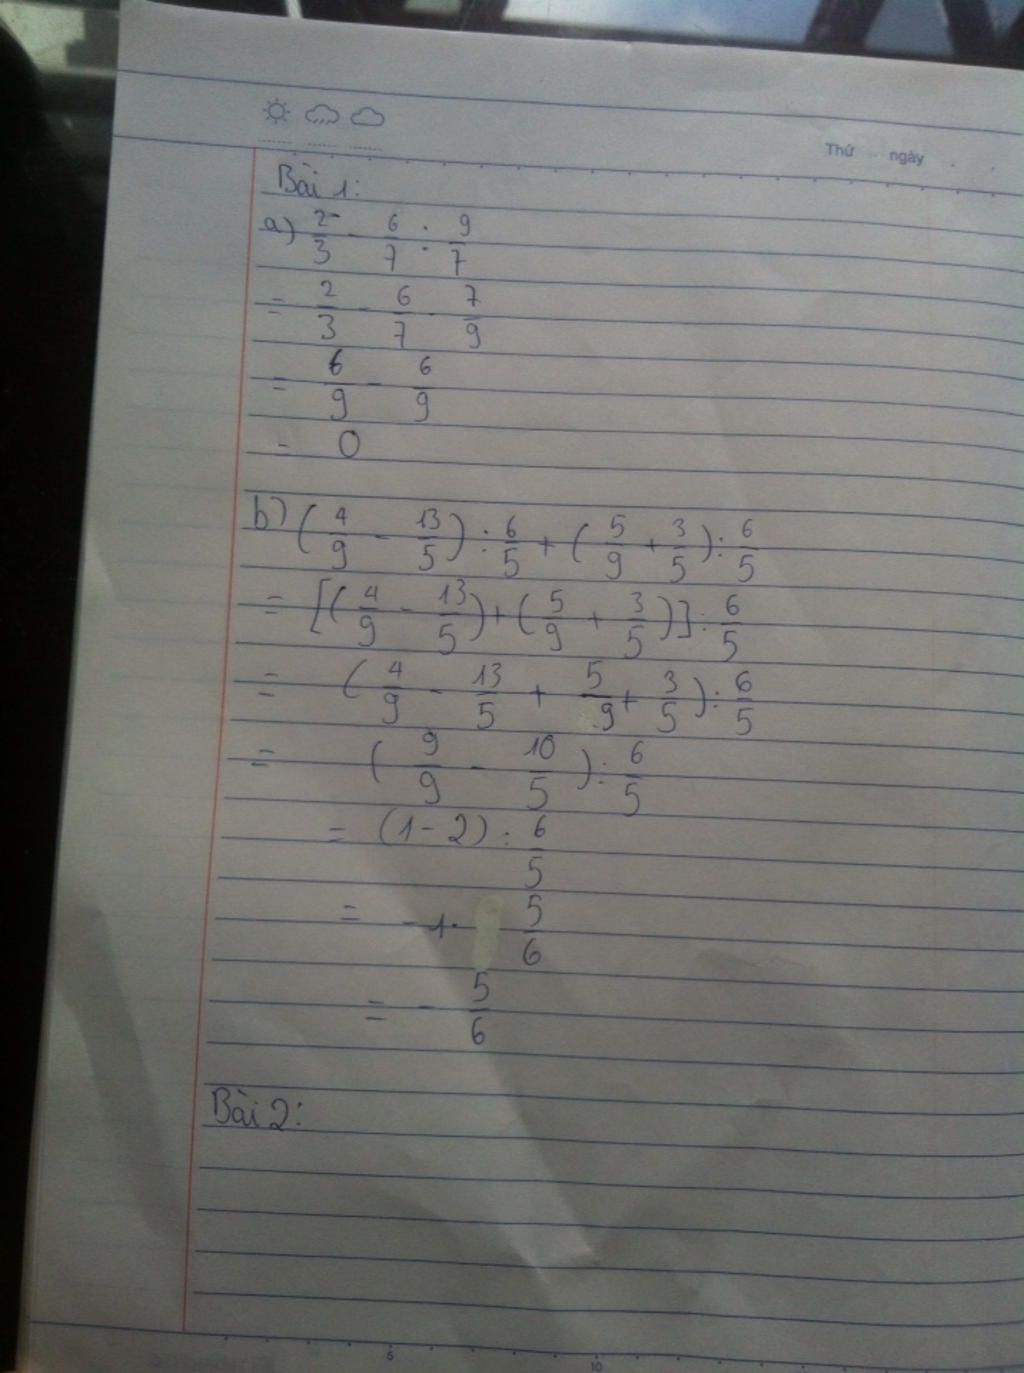 Thứ ngày
Bài 1:
a) 2/3 - 6/7 : 9/7
= 2/3 - 6/7 . 7/9
= 6/9 - 6/9
= 0
b) (4/9 - 13/5) : 6/5 + (5/9 + 3/5) : 6/5
= [(4/9 - 13/5) + (5/9 + 3/5)] : 6/5
= (4/9 - 13/5 + 5/9 + 3/5) : 6/5
= (9/9 - 10/5) : 6/5
= (1 - 2) : 6/5
= -1 . 5/6
= - 5/6
Bài 2:
5 10